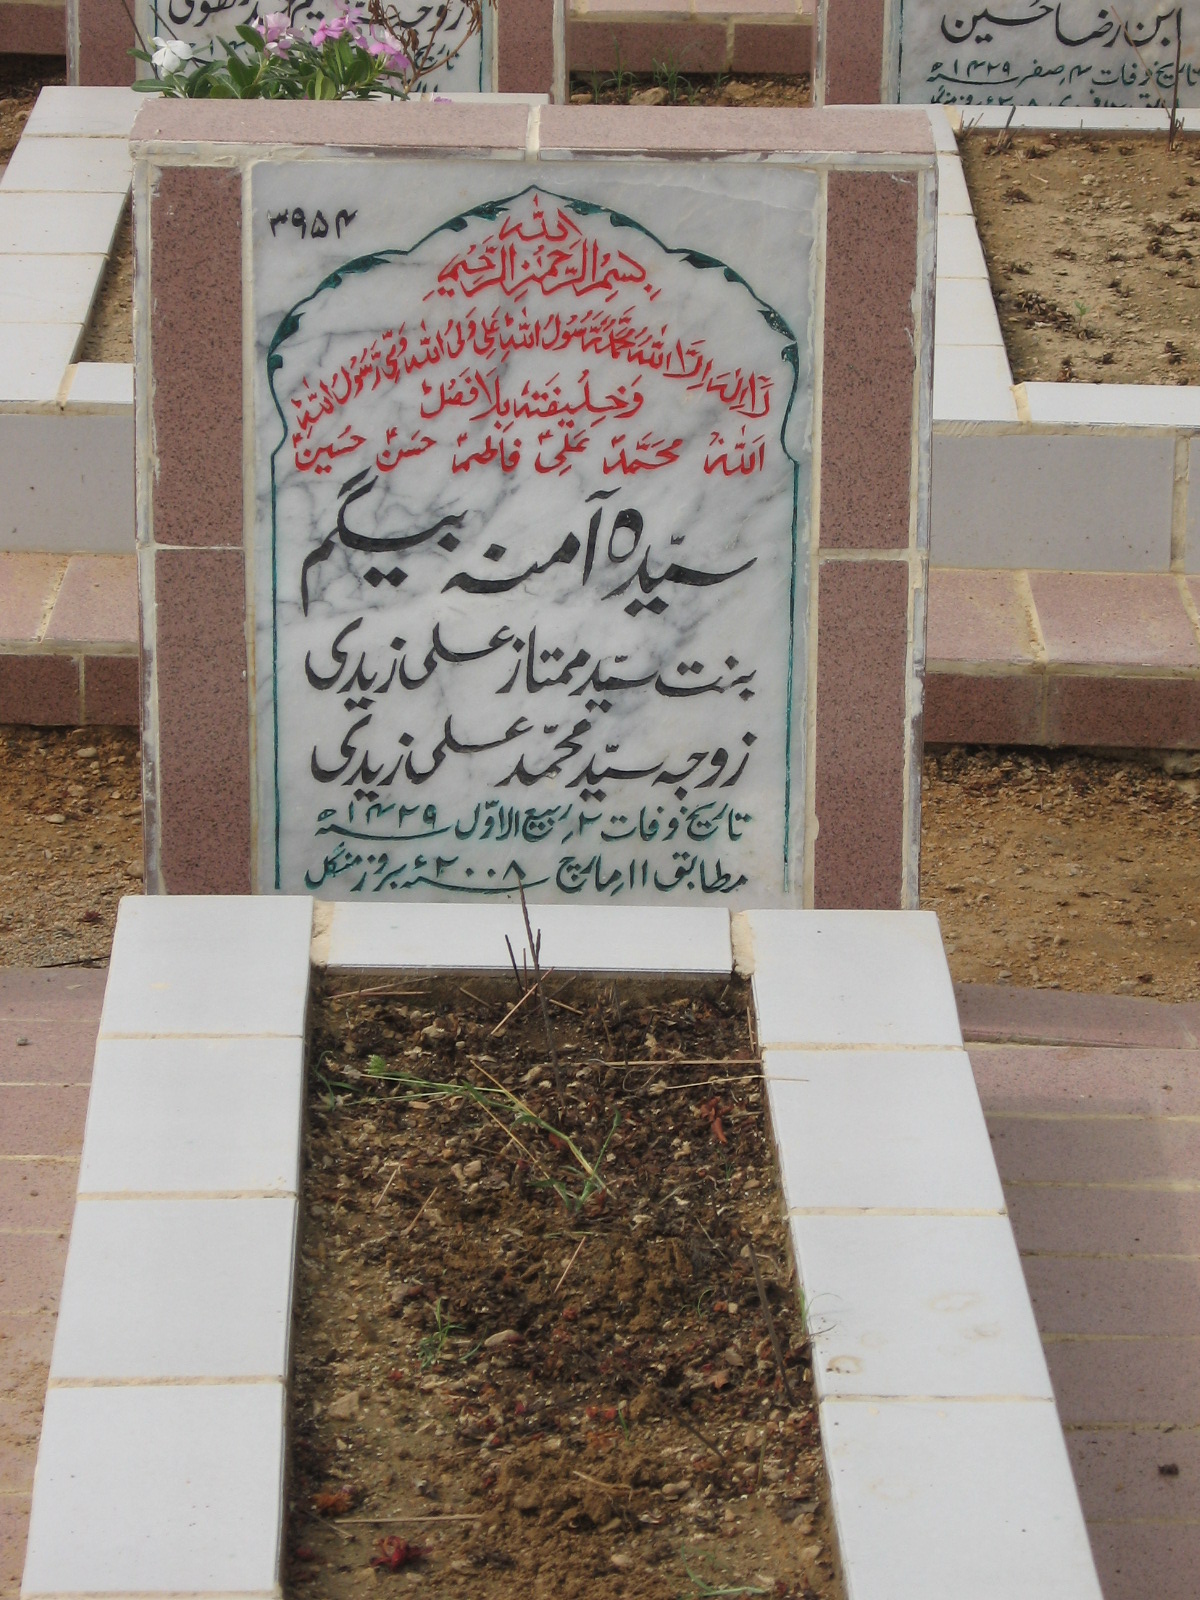 زوجہ
ابن رضا حسین
تاریخ وفات ۴؍ صفر ۱۴۲۹ھ
۳۹۵۴
اللہ
بِسْمِ الرَّحْمٰنِ الرَّحِیْمِ
لَا اِلٰہَ اِلَّا اللّٰہُ مُحَمَّدٌ رَّسُوْلُ اللّٰہِ عَلِیٌّ وَلِیُّ اللّٰہِ وَصِیُّ رَسُوْلُ اللّٰہِ
وَخَلِیْفَتَہٗ بِلَا فَصْل
اَللّٰہُ مُحَمَّدؐ عَلِیؑ فاطمہؑ حَسَنؑ حُسَینؑ
سیّدہ آمنہ بیگم
بنت سیّد ممتاز علی زیدی
زوجہ سیّد محمّد علی زیدی
تاریخ وفات ۲؍ ربیع الاوّل ۱۴۲۹ھ
مطابق ۱۱ مارچ ۲۰۰۸ء بروز منگل